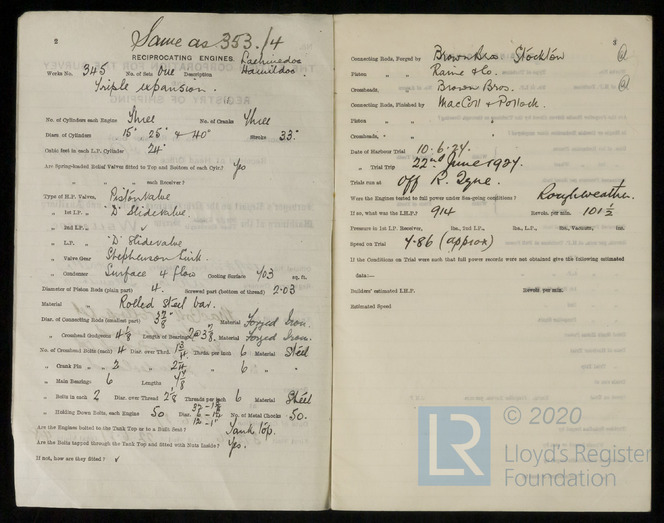 2
Same as 353./4
RECIPROCATING ENGINES.
Works No. 345 No. of Sets One Description
Triple expansion.
No. of Cylinders each Engine Three No. of Cranks Three
Diam. of Cylinders 15" 25" & 40" Stroke 33"
Cubic feet in each L.P. Cylinder 24"
Are Spring-loaded Relief Valves fitted to Top and Bottom of each Cylr.? Yes
" " " each Receiver?
Type of H.P. Valves, Piston Valve
" 1st I.P. " "D" Slidevalve.
" 2nd I.P. " ✓
" L.P. " "D" Slidevalve
" Valve Gear Stephenson Link.
" Condenser Surface 4 flow Cooling Surface 703 sq. ft.
Diameter of Piston Rods (plain part) 4. Screwed part (bottom of thread) 2.03
Material " Rolled Steel bar.
Diar. of Connecting Rods (smallest part) 3 7/8" Material Forged Iron.
" Crosshead Gudgeons 4 1/8 Length of Bearing 2@3 7/8 Material Forged Iron.
No. of Crosshead Bolts (each) 4 Diar. over Thrd. 1 3/4 Thrds. per inch 6 Material Steel
" Crank Pin " " 2 " 2 1/4 " 6 " "
" Main Bearings 6 Lengths
" Bolts in each 2 Diar. over Thread 2 1/8 Threads per inch 6 Material Steel
" Holding Down Bolts, each Engine 50 Diar. No. of Metal Chocks 50.
Are the Engines bolted to the Tank Top or to a Built Seat? Tank top.
Are the Bolts tapped through the Tank Top and fitted with Nuts Inside? Yes.
If not, how are they fitted? ✓
3
Connecting Rods, Forged by Brown Bros Stockton
Piston " Raine & Co.
Crossheads, " Brown Bros.
Connecting Rods, Finished by MacColl & Pollock.
Piston " "
Crossheads, " "
Date of Harbour Trial 10.6.24.
" Trial Trip 22nd June 1924.
Trials run at Off R. Tyne.
Were the Engines tested to full power under Sea-going conditions? Rough weather.
If so, what was the I.H.P.? 914 Revols. per min. 101 1/2
Pressure in 1st I.P. Receiver, lbs., 2nd I.P., lbs., L.P., lbs., Vacuum, ins.
Speed on Trial 7.86 (approx)
If the Conditions on Trial were such that full power records were not obtained give the following estimated
data:—
Builders' estimated I.H.P. Revols. per min.
Estimated Speed
© 2020
LR
Lloyd's Register
Foundation